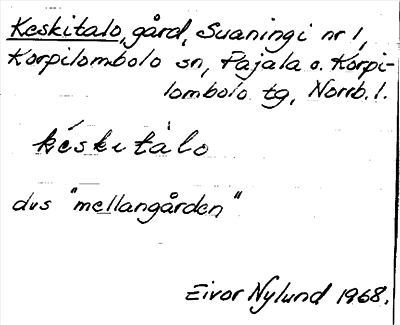 Keskitalo, gård, Suaningi nr 1,
Korpilombolo sn, Pajala o. Korpi-
lombolo tg, Norrb. l.
késkitàlo
dvs "mellangården"
Eivor Nylund 1968.